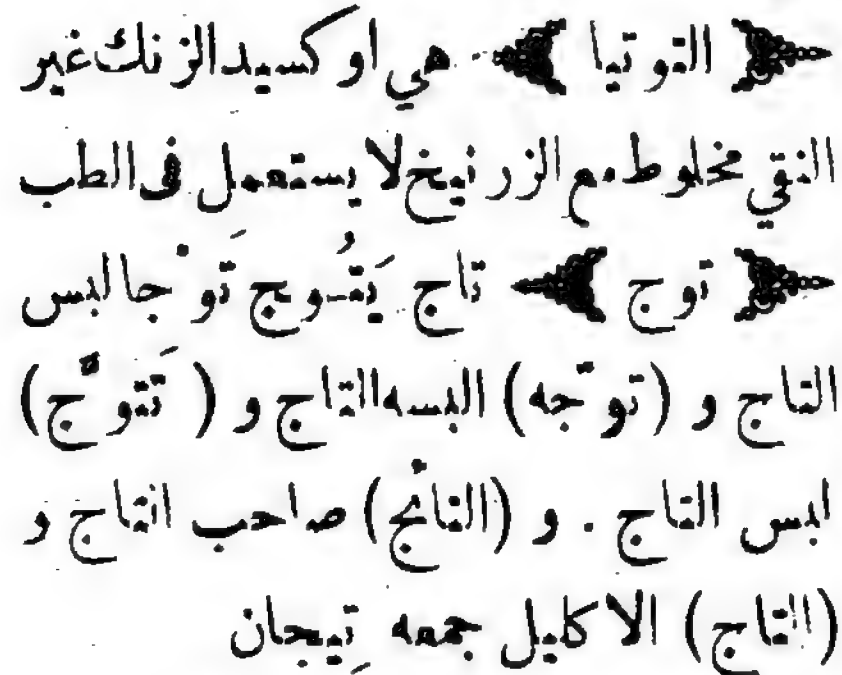 ﴿ التوتيا ﴾ هي اوكسيد الزنك غير
النقي مخلوط مع الزرنيخ لا يستعمل فى الطب
﴿ توج ﴾ تاج يَتُوج تَوْجا لبس
التاج و (توّجه) البسه التاج و (تَتوَّج)
لبس التاج . و (التائج) صاحب التاج و
(التاج) الاكليل جمعه تِيجان